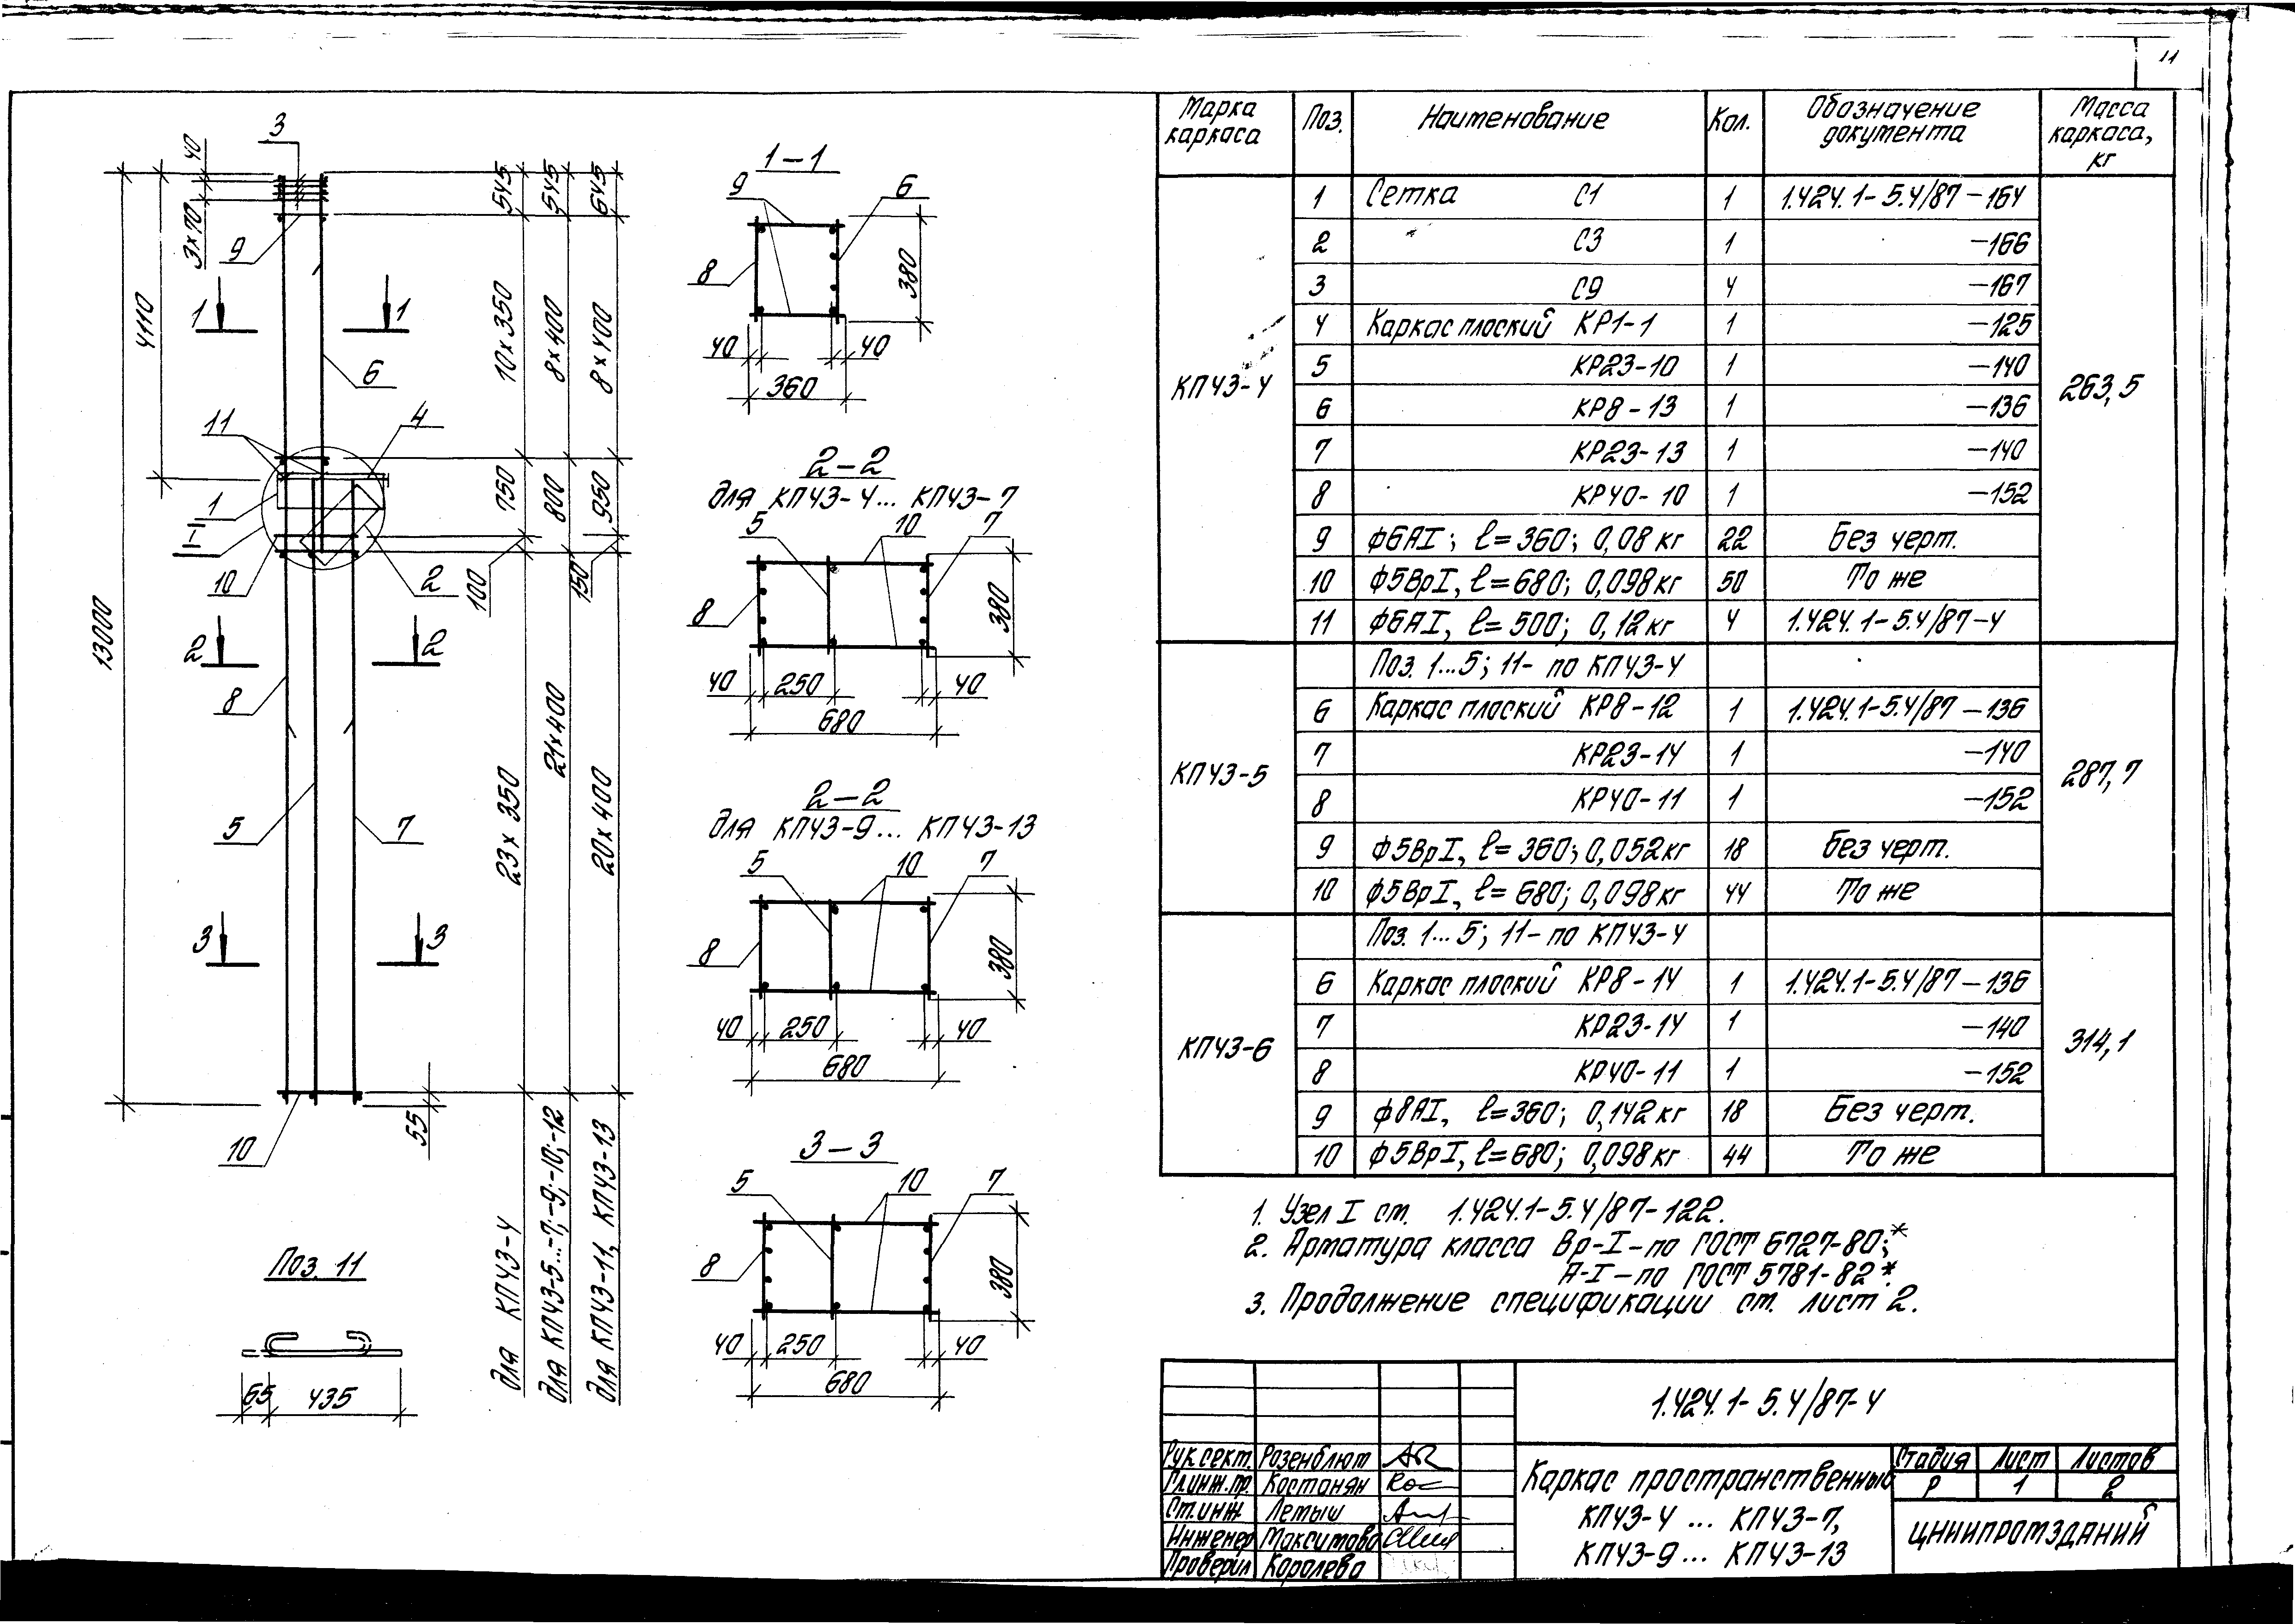 11
Марка каркаса | Поз. | Наименование | Кол. | Обозначение документа | Масса каркаса, кг
КП43-4 | 263,5
1 | Сетка С1 | 1 | 1.424.1-5.4/87-164
2 | С3 | 1 | -166
3 | С9 | 4 | -167
4 | Каркас плоский КР1-1 | 1 | -125
5 | КР23-10 | 1 | -140
6 | КР8-13 | 1 | -136
7 | КР23-13 | 1 | -140
8 | КР40-10 | 1 | -152
9 | ф6АI; ℓ=360; 0,08 кг | 22 | Без черт.
10 | ф5ВрI, ℓ=680; 0,098кг | 50 | То же
11 | ф6АI, ℓ=500; 0,12кг | 4 | 1.424.1-5.4/87-4
КП43-5 | 287,7
Поз. 1...5; 11- по КП43-4
6 | Каркас плоский КР8-12 | 1 | 1.424.1-5.4/87-136
7 | КР23-14 | 1 | -140
8 | КР40-11 | 1 | -152
9 | ф5ВрI, ℓ=360; 0,052кг | 18 | Без черт.
10 | ф5ВрI, ℓ=680; 0,098кг | 44 | То же
КП43-6 | 314,1
Поз. 1...5; 11- по КП43-4
6 | Каркас плоский КР8-14 | 1 | 1.424.1-5.4/87-136
7 | КР23-14 | 1 | -140
8 | КР40-11 | 1 | -152
9 | ф8АI, ℓ=360; 0,142кг | 18 | Без черт.
10 | ф5ВрI, ℓ=680; 0,098кг | 44 | То же
1. Узел I см. 1.424.1-5.4/87-122.
2. Арматура класса Вр-I-по ГОСТ 6727-80;*
А-I-по ГОСТ 5781-82*.
3. Продолжение спецификации см. лист 2.
1.424.1-5.4/87-4
Рук.сект. Розенблют
Гл.инж.пр. Костанян
Ст.инж. Лемыш
Инженер Максимова
Проверил Королева
Каркас пространственный
КП43-4 ... КП43-7,
КП43-9... КП43-13
Стадия Лист Листов
Р 1 2
ЦНИИПРОМЗДАНИЙ
3
40
3×70
9
4110
13000
1 1
6
11
4
1
I
10
2
2 2
8
5
7
3 3
10
55
545 545 645
10×350 8×400 8×400
750 800 950
100 150
23×350 21×400 20×400
для КП43-4
для КП43-5...-7;-9;-10;-12
для КП43-11, КП43-13
Поз. 11
65 435
1-1
9 6
8
380
40 40
360
2-2
для КП43-4... КП43-7
5 10 7
8
380
40 250 40
680
2-2
для КП43-9... КП43-13
5 10 7
8
380
40 250 40
680
3-3
5 10 7
8
380
40 250 40
680